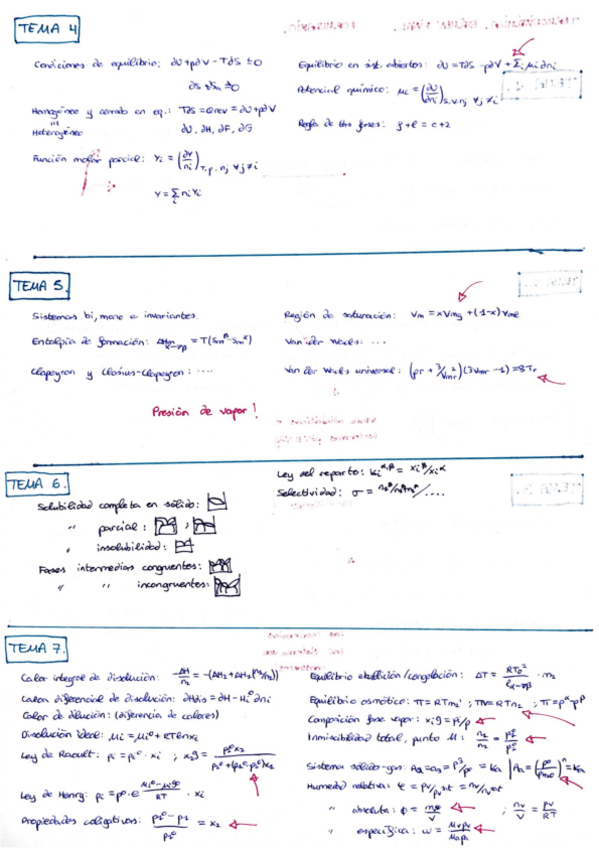 TEMA 4
Condiciones de equilibrio: dU + pdV - TdS ≤ 0
Homogéneo y cerrado en eq.: TdS = Qrev = dU + pdV
Heterogéneo dU, dH, dF, dG
Función molar parcial: Yi = (∂Y/ni)T,p,nj ∀j≠i
Y = Σi niYi
Equilibrio en sist. abiertos: dU = TdS - pdV + Σi μidni
Potencial químico: μi = (∂U/∂ni)S,V,nj ∀j≠i
Regla de las fases: f + l = c + 2
TEMA 5.
Sistemas bi, mono e invariantes.
Entalpía de formación: ΔHm α→β = T(Smᵝ - Smᵅ)
Clapeyron y Clasius-Clapeyron: ....
Presión de vapor!
Región de saturación: Vm = xVmg + (1-x)Vme
Van der Waals: ...
Van der Waals universal: (pr + 3/Vmr²)(3Vmr - 1) = 8Tr
TEMA 6.
Solubilidad completa en sólido:
" parcial: ;
" insolubilidad:
Fases intermedias congruentes:
" " incongruentes:
Ley del reparto: Ki^α,β = xiᵝ/xiᵅ
Selectividad: σ =
TEMA 7.
Calor integral de disolución: -ΔH/n2 = -(ΔH2 + ΔH1(n1/n2))
Calor diferencial de disolución:
Calor de dilución: (diferencia de calores)
Disolución ideal: μi = μi⁰ + RTlnxi
Ley de Raoult: pi = pi⁰ · xi ;
Ley de Henry: · xi
Propiedades coligativas: (p1⁰ - p1)/p1⁰ = x2
Equilibrio ebullición/congelación: ΔT = RT0²/lα→β · m2
Equilibrio osmótico: π = RTm2' ; πV = RTn2 ; π = pᵅ - pᵝ
Composición fase vapor: xig = pi/p
Inmiscibilidad total, punto M: n1/n2 = p1⁰/p2⁰
Sistema sólido-gas:
Humedad relativa:
" absoluta: ; nv/V = pv/RT
" específica: ω = Mvpv/Mapa